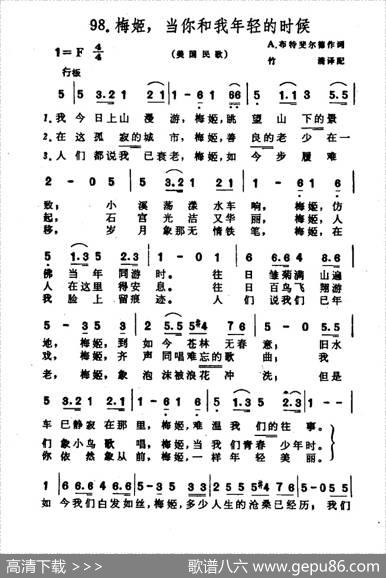 98.梅姬，当你和我年轻的时候
1=F 4/4
（美国民歌）
A.布特斐尔德作词
竹漪译配
行板
5 5 3.2 1 2 1 | 1 - 6 1 6 6 | 5 5 1.1 3 5.5 |
1.我今日上山漫游，梅姬，眺望山下的景
2.在这孤寂的城市，梅姬，善良的老少在一
3.人们都说我已衰老，梅姬，如今步履难
2 - 0 5 | 5 3.2 1 2 1 | 1 - 6 1 6 |
致；小溪荡漾水车响，梅姬，仿
起，石宫光洁又华丽，梅姬，人
移，岁月象那无情铁笔，梅姬，在
5 1.3 5 2.3 | 1 - 0 1 | 6 6.6 4 6.6 |
佛当年同游时。往日雏菊满山遍
人在这里得安息。往日百鸟飞翔游
我脸上留痕迹。人们说我们已年
5 - 3 5 3 | 2 5.5 5 #4 6 | 5 - 0 5.5 |
地，梅姬，到如今苍林无春意；旧水
戏，梅姬，齐声同唱难忘的歌曲；我
老，梅姬，象泡沫被浪花冲洗；但是
5 3.2 1 2.1 | 1 - 6 1 6 | 5 1.3 5 2.3 | 1 - 0 |
车已静寂在那里，梅姬，难温我们的往事。
们象小鸟歌唱，梅姬，当我们青春少年时。
你依然象从前，梅姬，一样年轻美丽。
如今我们白发如丝，梅姬，多少人生的沧桑已经历；我们
高清下载 >>>
歌谱八六 www.gepu86.com